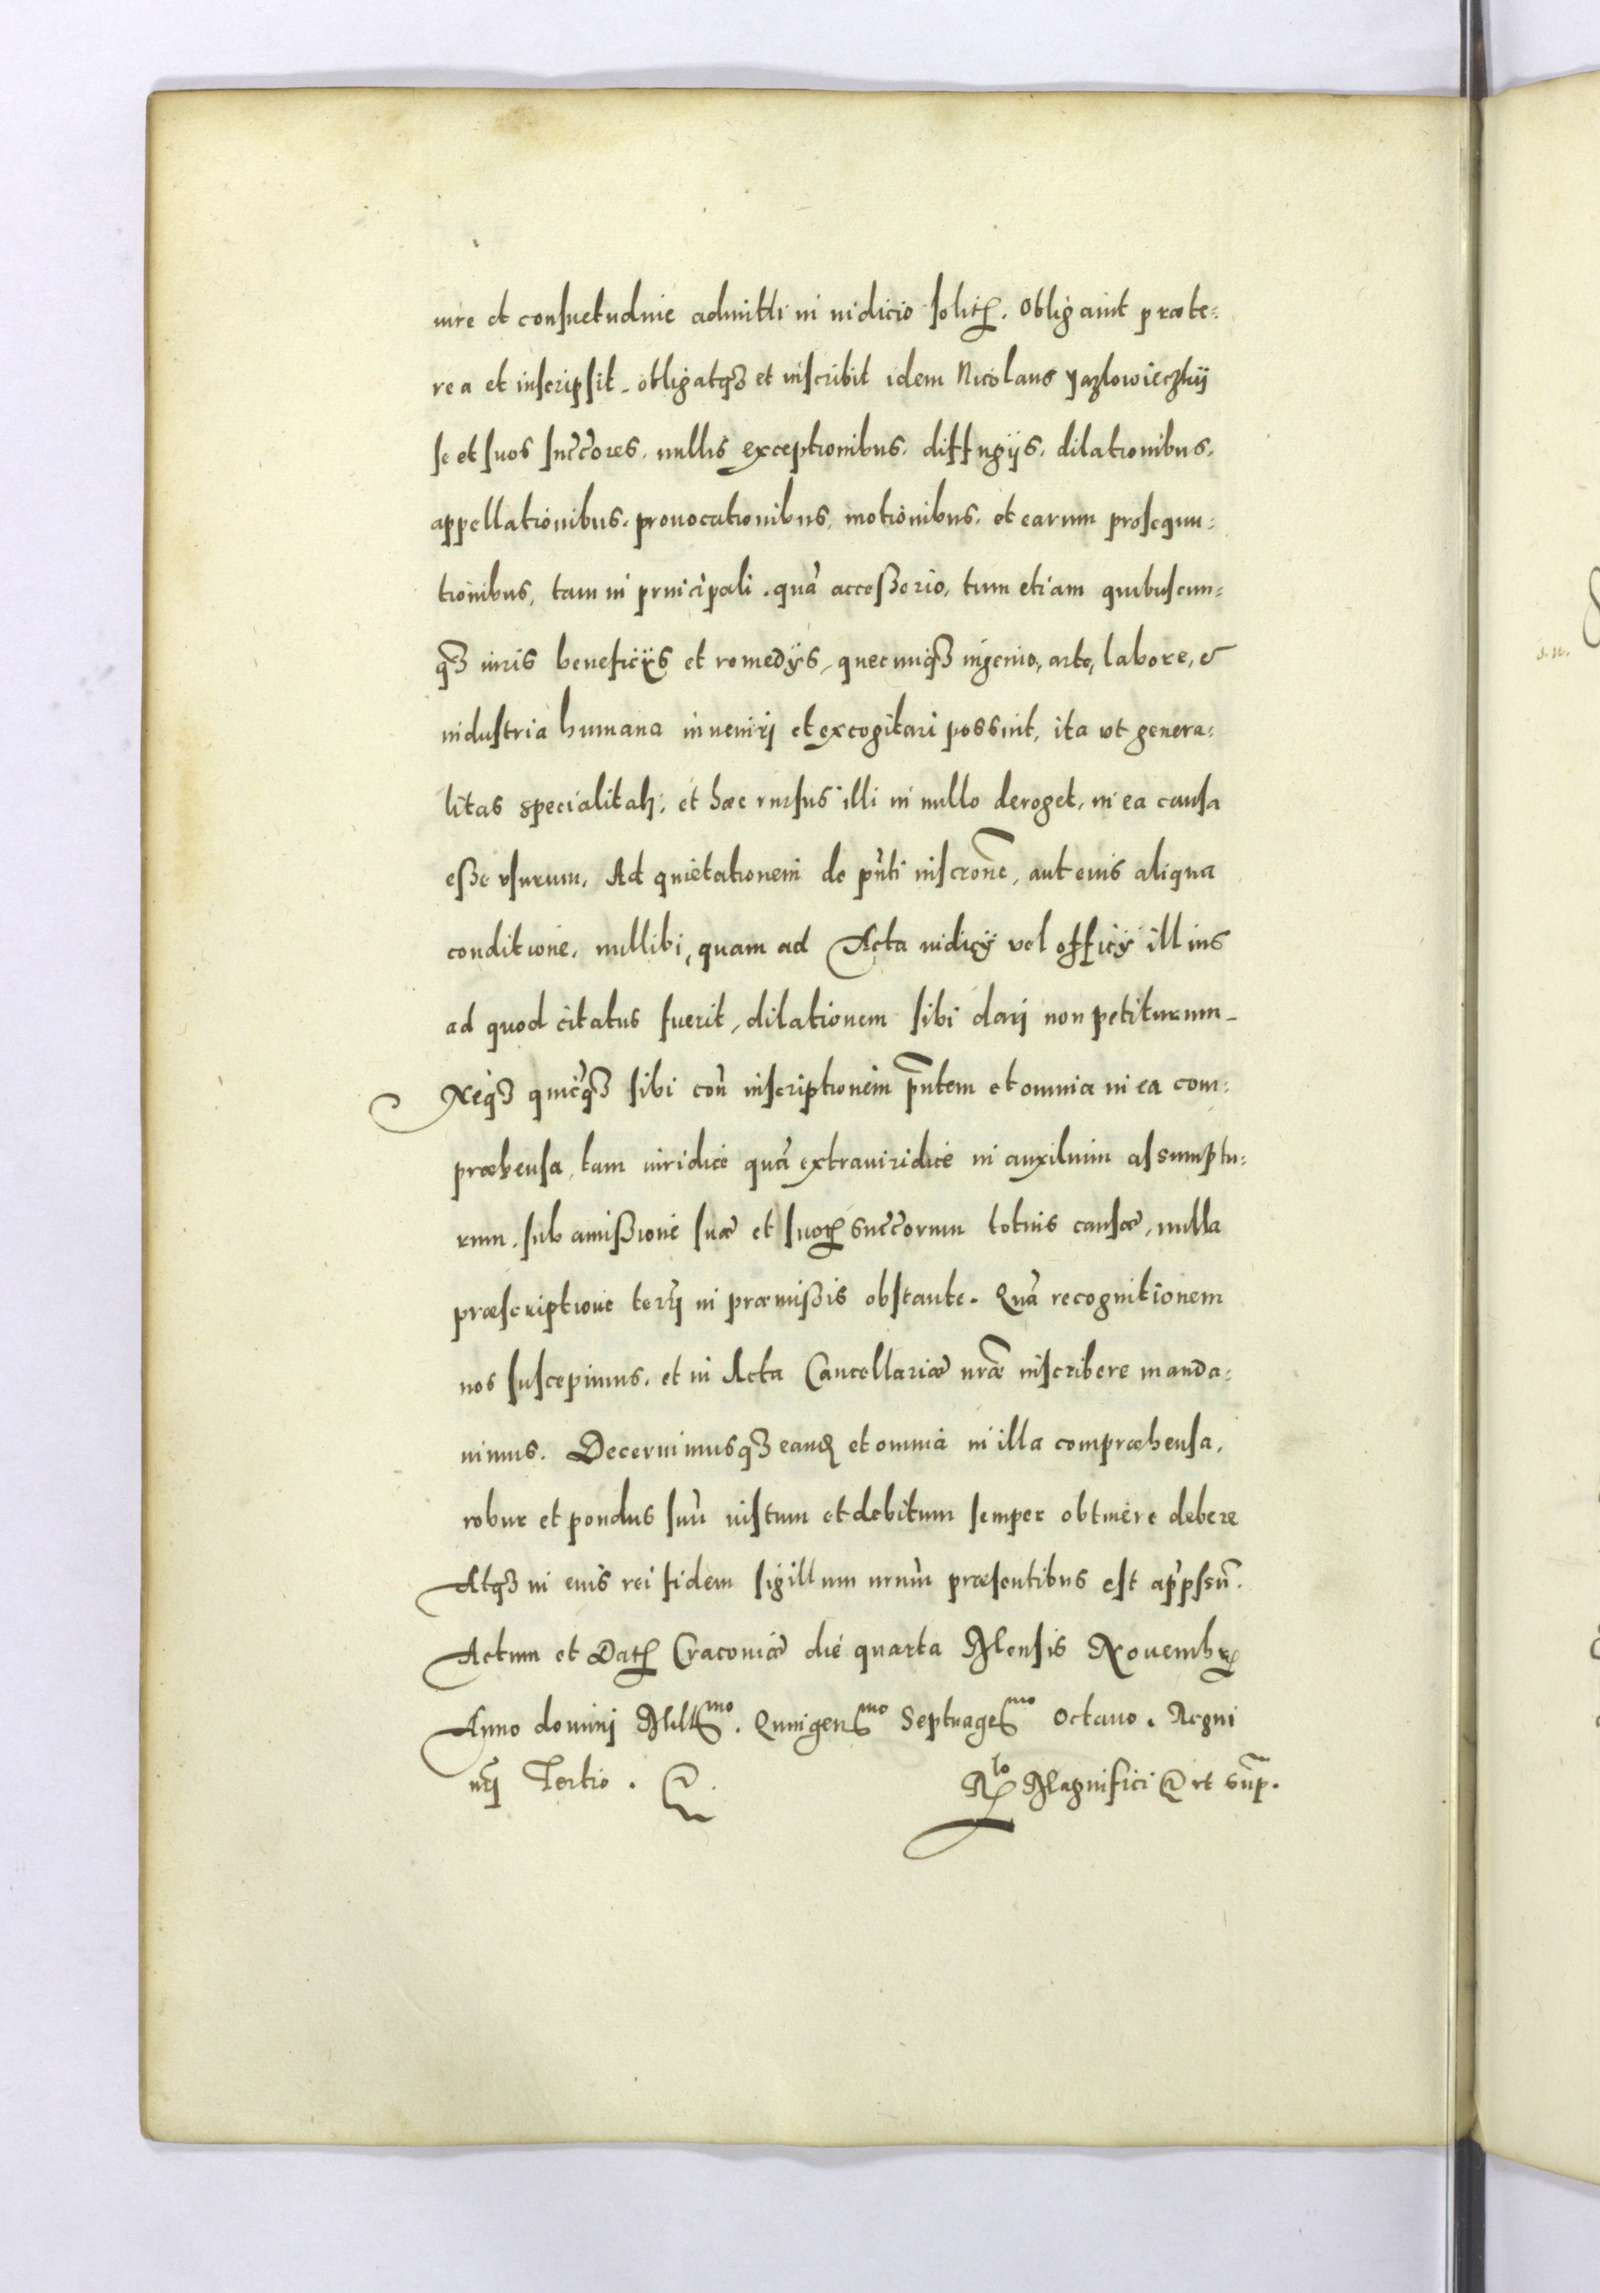 iure et consuetudine admitti in iudicio solitꝝ. Obligauit præte:
rea et inscripsit. obligatqꝫ et inscribit idem Nicolaus Jazlowieczkij
se et suos succ̃ores. nullis exceptionibus. diffugijs. dilationibus.
appellationibus. prouocationibus, motionibus. et earum prosequu:
tionibus, tam in principali. quã accessorio, tum etiam quibuscun:
qꝫ iuris beneficijs et remedijs, quecunqꝫ ingenio, arte, labore, et
industria humana inueniri et excogitari possint, ita vt genera:
litas specialitati, et hæc rursus illi in nullo deroget, in ea causa
esse vsurum. Ad quietationem de pn̄ti inscr̄one, aut eius aliqua
conditione, nullibi, quam ad Acta iudicij vel officij illius
ad quod citatus fuerit, dilationem sibi dari non petiturum.
Neqꝫ quicqꝫ sibi con̄ inscriptionem p̄ntem et omnia in ea com:
præhensa, tam iuridice quã extraiuridice in auxilium assumptu:
rum, sub amissione suæ et suoꝝ succ̃orum totius causæ, nulla
præscriptione terr̄j in præmissis obstante. Quã recognitionem
nos suscepimus. et in Acta Cancellariæ nr̄æ inscribere manda:
uimus. Decernimusqꝫ eandē et omnia in illa compræhensa,
robur et pondus suū iustum et debitum semper obtinere debere
Atqꝫ in eius rei fidem sigillum nr̄um præsentibus est app̄ssū.
Actum et Datꝝ Cracouiæ die quarta Mensis Nouembrꝭ
Anno domini Mill<sup>mo</sup>. Quingen<sup>mo</sup> Septuages<sup>mo</sup> Octauo. Regni
nr̄j Tertio.
R<sup>lo</sup> Magnifici et vt sup̄.